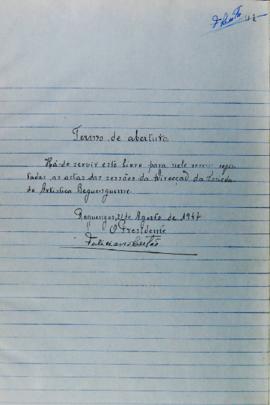 Termo de abertura
Há-de servir este livro para nele serem regis-
tadas, as actas das sessões da Direcção da Socieda-
de Artistica Reguenguense.
Reguengos, de Agosto de 1947
O Presidente